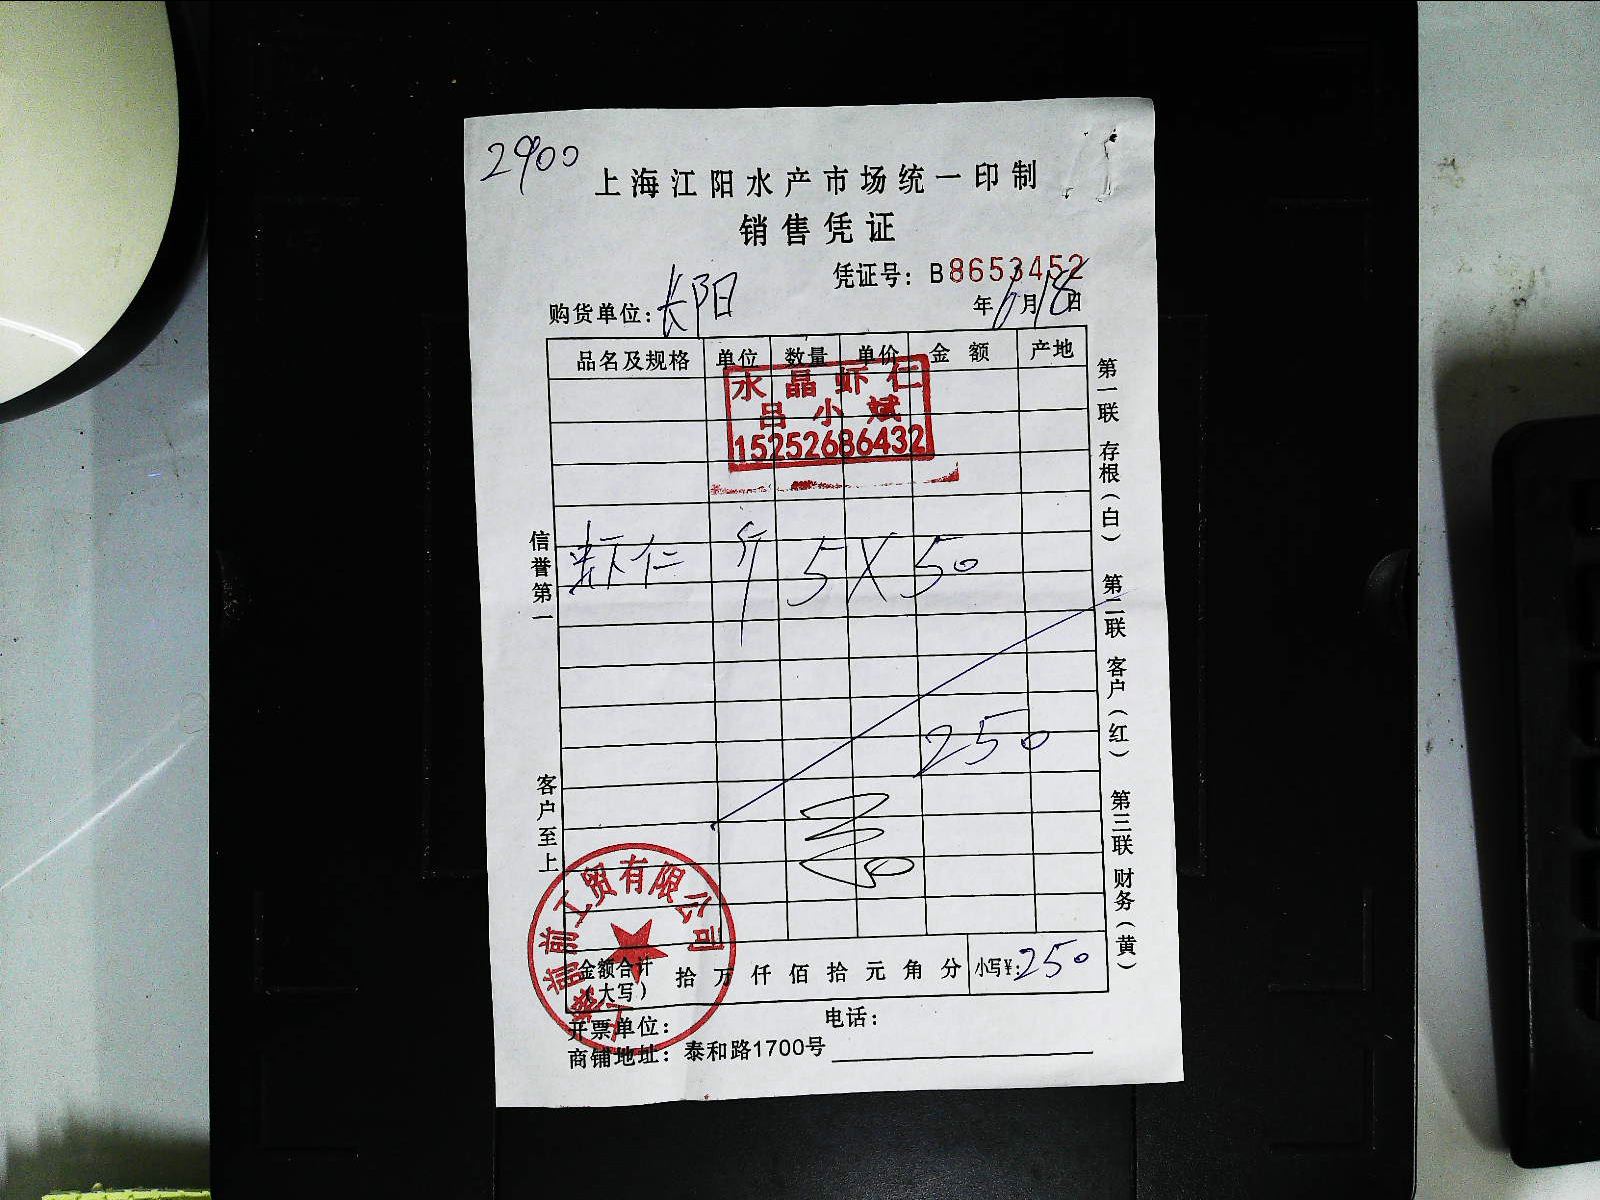 2900
上海江阳水产市场统一印制
销售凭证
凭证号：B8653452
购货单位：长阳 年6月18日
品名及规格 单位 数量 单价 金额 产地
水晶虾仁
吕小斌
15252686432
虾仁 斤 5X50
250
金额合计（大写） 拾万仟佰拾元角分 小写¥：250
开票单位： 电话：
商铺地址：泰和路1700号
信誉第一 客户至上
第一联 存根（白） 第二联 客户（红） 第三联 财务（黄）
前工贸有限公司